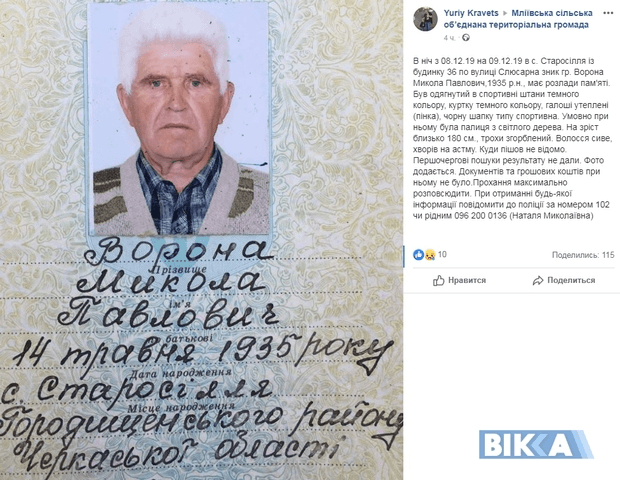 Ворона
Прізвище
Микола
Ім'я
Павлович
По батькові
14 травня 1935 року
Дата народження
с. Старосілля
Місце народження
Городищенського району
Черкаської області
Yuriy Kravets ▸ Мліївська сільська
об'єднана територіальна громада
4 ч. ·
В ніч з 08.12.19 на 09.12.19 в с. Старосілля із
будинку 36 по вулиці Слюсарна зник гр. Ворона
Микола Павлович,1935 р.н., має розлади пам'яті.
Був одягнутий в спортивні штани темного
кольору, куртку темного кольору, галоші утеплені
(пінка), чорну шапку типу спортивна. Умовно при
ньому була палиця з світлого дерева. На зріст
близько 180 см., трохи згорблений. Волосся сиве,
хворів на астму. Куди пішов не відомо.
Першочергові пошуки результату не дали. Фото
додається. Документів та грошових коштів при
ньому не було.Прохання максимально
розповсюдити. При отриманні будь-якої
інформації повідомити до поліції за номером 102
чи рідним 096 200 0136 (Наталя Миколаївна)
10
Поделились: 115
Нравится
Поделиться
ВІККА